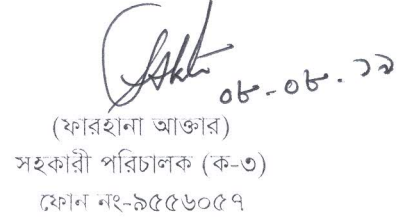 ০৮-০৮-১৯
(ফারহানা আক্তার)
সহকারী পরিচালক (ক-৩)
ফোন নং-৯৫৫৬০৫৭